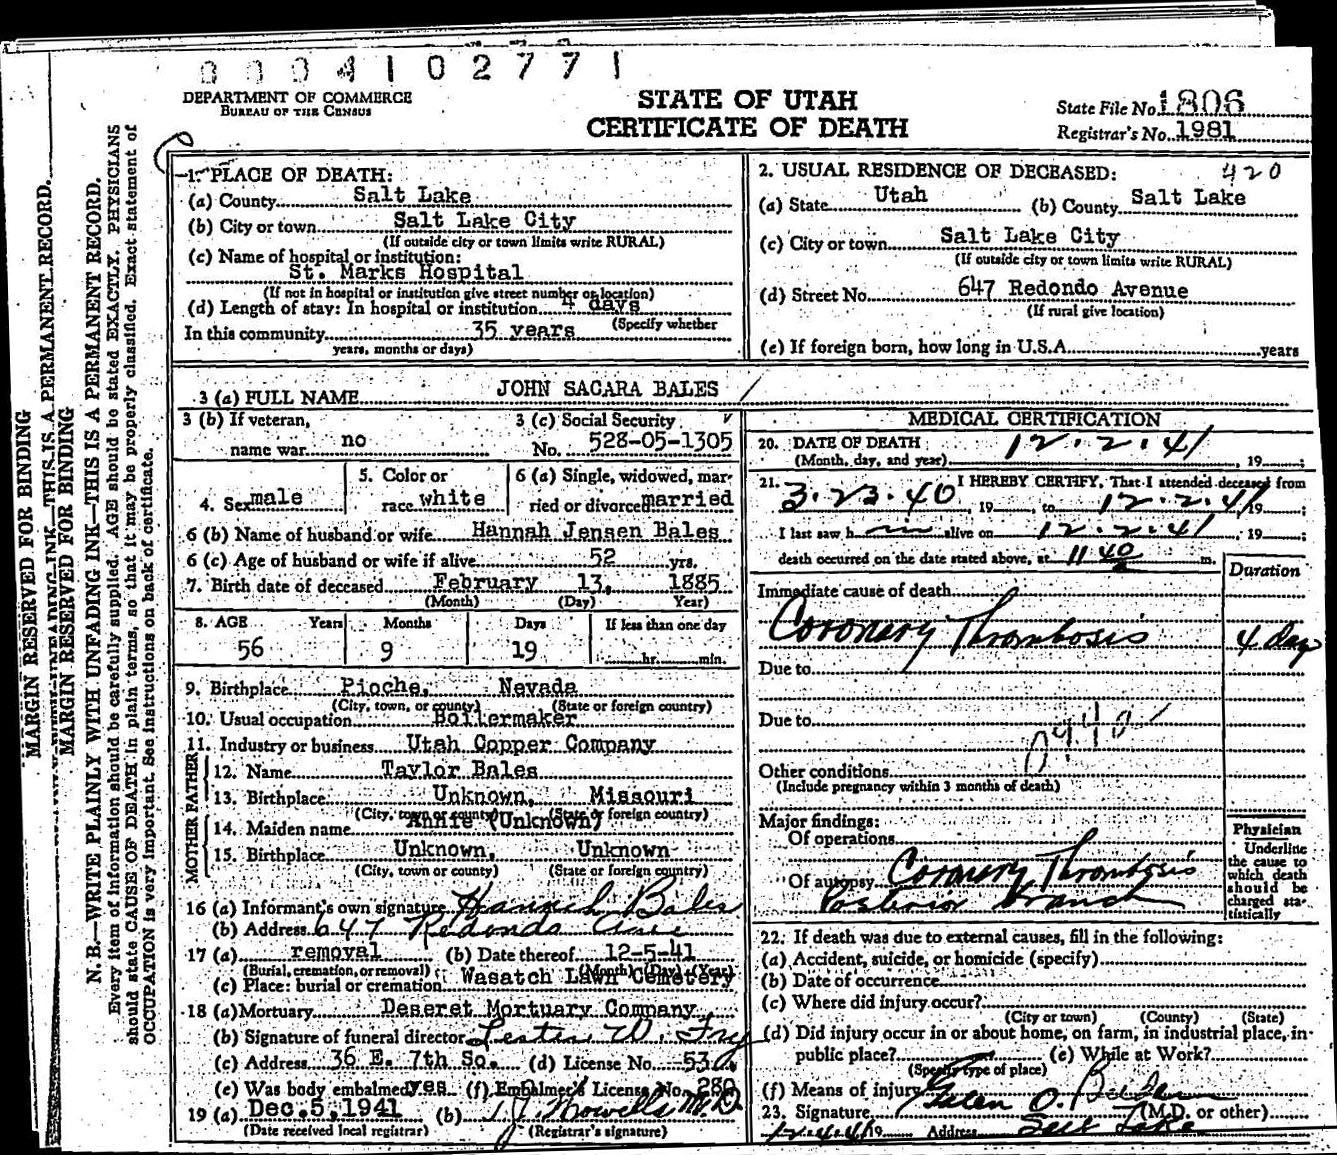 0004102771
DEPARTMENT OF COMMERCE
BUREAU OF THE CENSUS
STATE OF UTAH
CERTIFICATE OF DEATH
State File No. 1806
Registrar's No. 1981
MARGIN RESERVED FOR BINDING
MARGIN RESERVED FOR BINDING
N. B.—WRITE PLAINLY WITH UNFADING INK—THIS IS A PERMANENT RECORD.
Every item of information should be carefully supplied. AGE should be stated EXACTLY. PHYSICIANS
should state CAUSE OF DEATH in plain terms, so that it may be properly classified. Exact statement of
OCCUPATION is very important. See instructions on back of certificate.
1. PLACE OF DEATH:
(a) County Salt Lake
(b) City or town Salt Lake City
(If outside city or town limits write RURAL)
(c) Name of hospital or institution:
St. Marks Hospital
(If not in hospital or institution give street number or location)
(d) Length of stay: In hospital or institution 4 days
(Specify whether
In this community 35 years
years, months or days)
2. USUAL RESIDENCE OF DECEASED: 420
(a) State Utah (b) County Salt Lake
(c) City or town Salt Lake City
(If outside city or town limits write RURAL)
(d) Street No. 647 Redondo Avenue
(If rural give location)
(e) If foreign born, how long in U.S.A. years
3 (a) FULL NAME JOHN SACARA BALES
3 (b) If veteran,
name war no
3 (c) Social Security
No. 528-05-1305
4. Sex male
5. Color or
race white
6 (a) Single, widowed, mar-
ried or divorced married
6 (b) Name of husband or wife Hannah Jensen Bales
6 (c) Age of husband or wife if alive 52 yrs.
7. Birth date of deceased February 13, 1885
(Month) (Day) Year)
8. AGE Years Months Days If less than one day
56 9 19 hr. min.
9. Birthplace Pioche, Nevada
(City, town, or county) (State or foreign country)
10. Usual occupation Boilermaker
11. Industry or business Utah Copper Company
FATHER
12. Name Taylor Bales
13. Birthplace Unknown, Missouri
(City, town or county) (State or foreign country)
MOTHER
14. Maiden name Annie (Unknown)
15. Birthplace Unknown, Unknown
(City, town or county) (State or foreign country)
16 (a) Informant's own signature Hannah Bales
(b) Address 647 Redondo Ave
17 (a) removal (b) Date thereof 12-5-41
(Burial, cremation, or removal) (Month) (Day) (Year)
(c) Place: burial or cremation Wasatch Lawn Cemetery
18 (a) Mortuary Deseret Mortuary Company
(b) Signature of funeral director Lester W. Fry
(c) Address 36 E. 7th So. (d) License No. 530
(e) Was body embalmed yes (f) Embalmer's License No. 280
19 (a) Dec. 5, 1941 (b) T. J. Howells M.D
(Date received local registrar) (Registrar's signature)
MEDICAL CERTIFICATION
20. DATE OF DEATH 12-2-41
(Month, day, and year) , 19 ;
21. I HEREBY CERTIFY, That I attended deceased from
3-23-40 , 19 , to 12-2-41 19 ;
I last saw h im alive on 12-2-41 , 19 ;
death occurred on the date stated above, at 11 40 a m.
Duration
Immediate cause of death
Coronary Thrombosis 4 day
Due to
Due to
Other conditions
(Include pregnancy within 3 months of death)
Major findings:
Of operations
Of autopsy Coronary Thrombosis
Posterior branch
Physician
Underline
the cause to
which death
should be
charged sta-
tistically
22. If death was due to external causes, fill in the following:
(a) Accident, suicide, or homicide (specify)
(b) Date of occurrence
(c) Where did injury occur?
(City or town) (County) (State)
(d) Did injury occur in or about home, on farm, in industrial place, in
public place? (e) While at Work?
(Specify type of place)
(f) Means of injury
23. Signature (M.D. or other)
12-4-41 19 Address Salt Lake